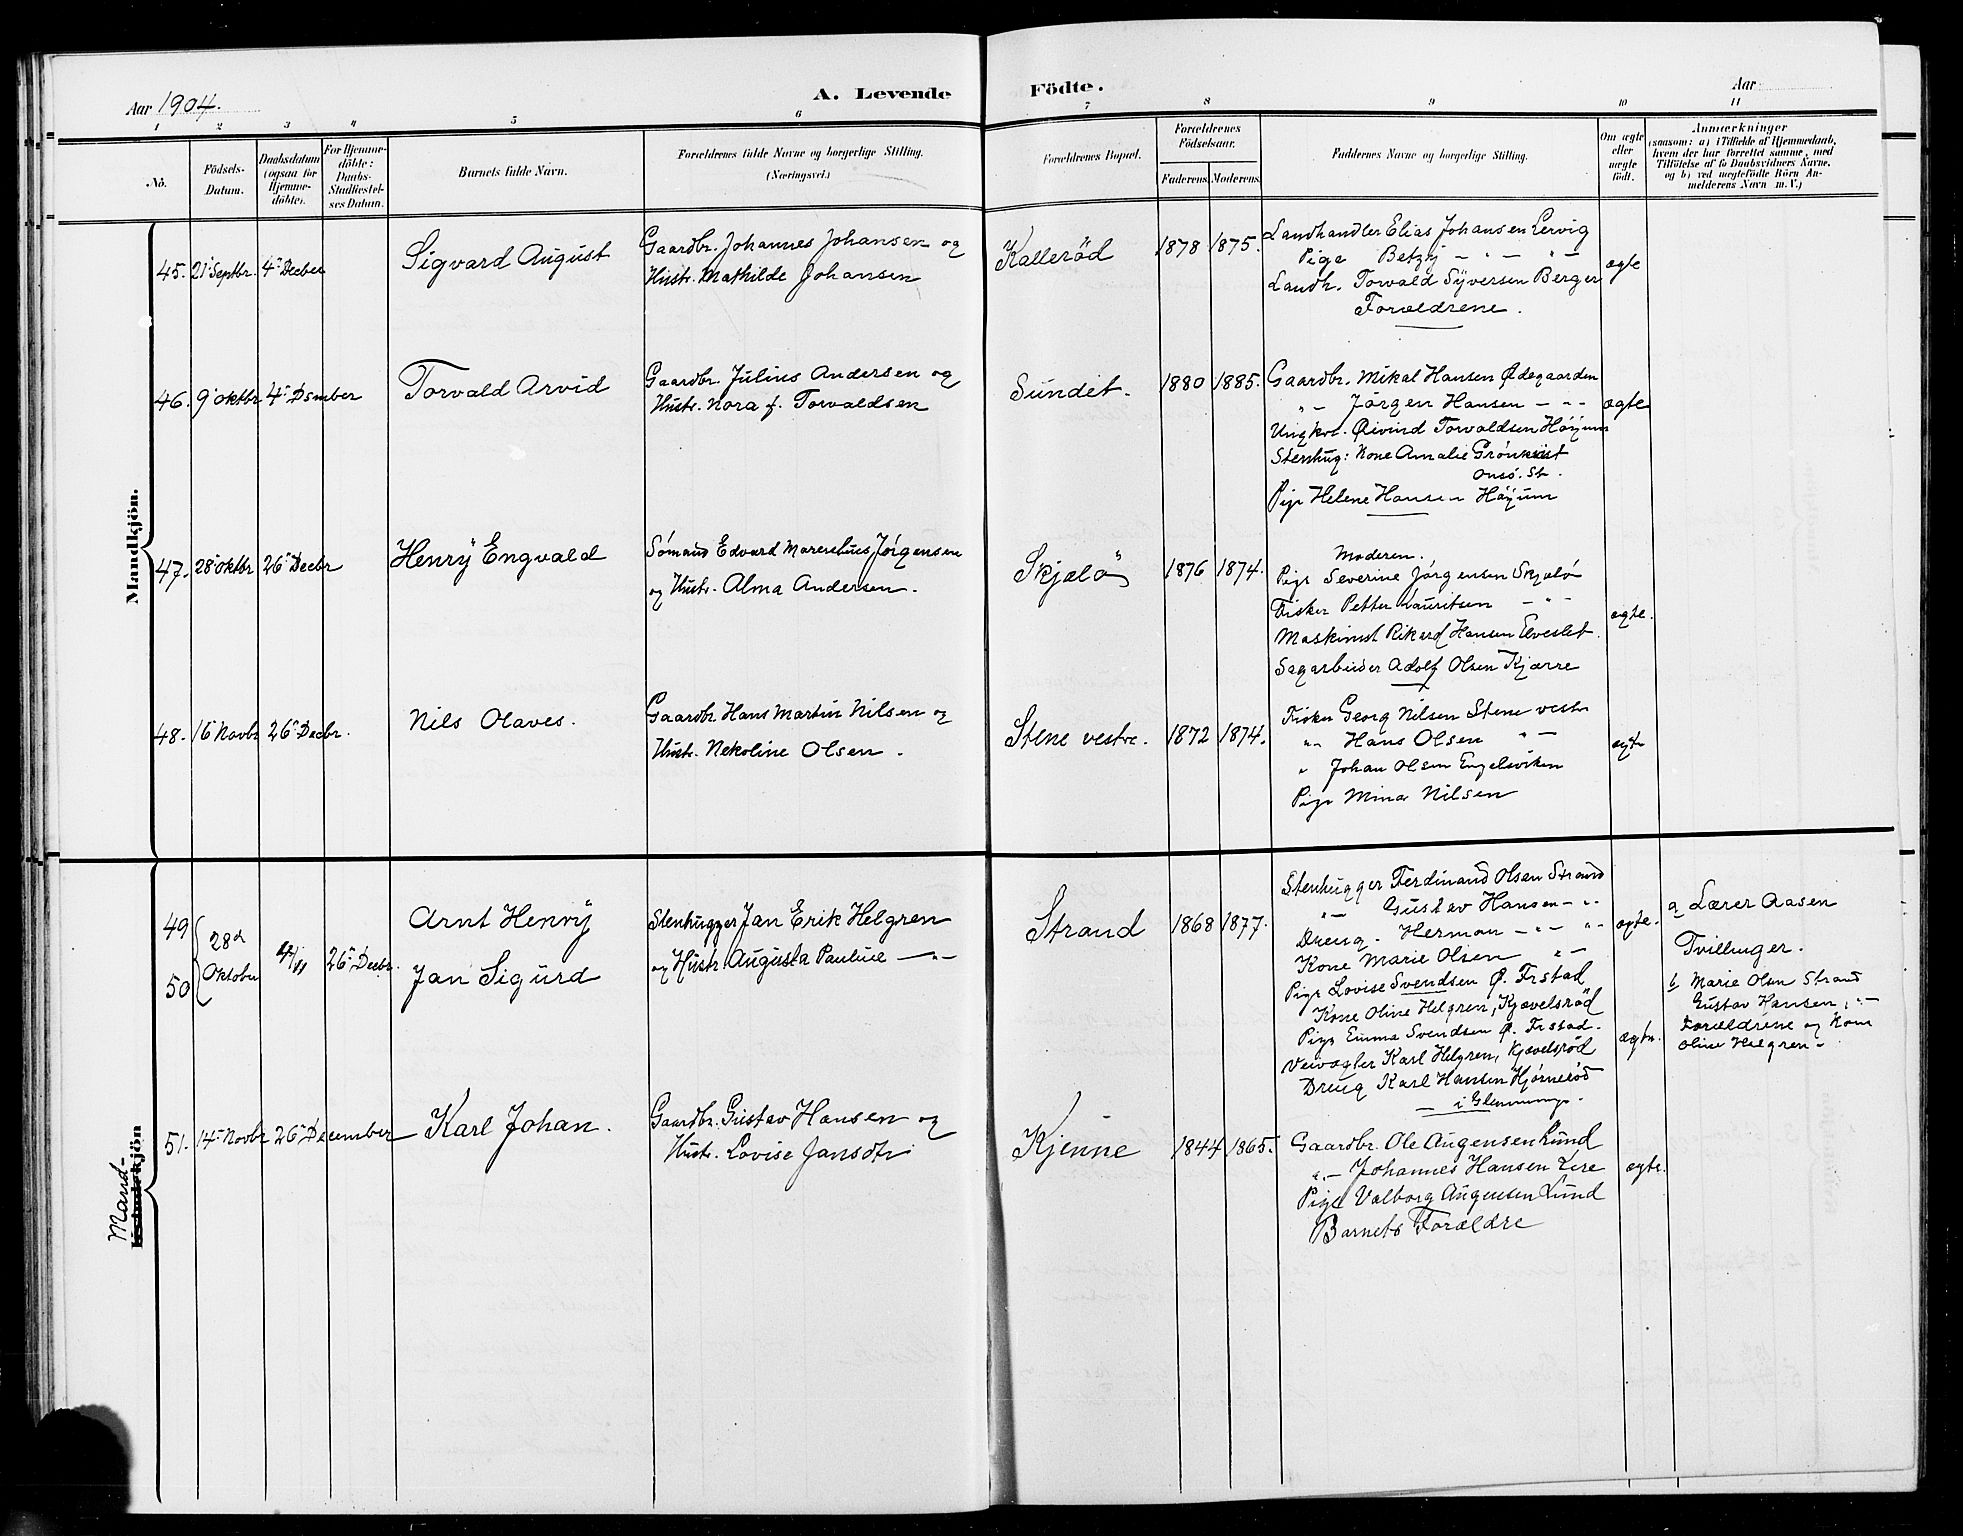 Aar 1904.
A. Levende Födte.
Aar
1 2 3 4 5 6 7 8 9 10 11
No.
Födsels-Datum.
Daabsdatum (ogsaa for Hjemmedöbte).
For Hjemmedöbte: Daabs-Stadfæstelses Datum.
Barnets fulde Navn.
Forældrenes fulde Navne og borgerlige Stilling. (Næringsvei.)
Forældrenes Bopæl.
Forældrenes Födselsaar.
Faderens. Moderens.
Faddernes Navne og borgerlige Stilling.
Om ægte eller uægte födt.
Anmærkninger
(saasom: a) i Tilfælde af Hjemmedaab, hvem der har forrettet samme, med Tilföielse af to Daabsvidners Navne, og b) ved uægtefödte Börn Anmelderens Navn m. V.)
Mandkjön.
45. 21 Septbr. 4 Decber
Sigvard August
Gaardbr. Johannes Johansen og
Hustr. Mathilde Johansen
Kallerød
1878 1875.
Landhandler Elias Johansen Lervig
Pige Betzy — " — " —
Landh. Torvald Syversen Berger
Forældrene.
ægte
46. 9 oktbr 4 Dsmber
Torvald Arvid
Gaardbr. Julius Andersen og
Hustr. Nora f. Torvaldsen
Sundet.
1880 1885.
Gaardbr. Mikal Hansen Ødegaarden
" — Jørgen Hansen — " —
Ungkr. Øivind Torvaldsen Høyum
Stenhug: Kone Amalie Grönkvist
Onsö. St.
Pige Helene Hansen Høyum
ægte
47. 28 oktbr 26 Decbr
Henry Engvald
Sømand Edvard Jørgensen
og Hustr. Alma Andersen.
Skjælø
1876 1874.
Moderen.
Pige Severine Jørgensen Skjælø
Fisker Petter Lauritsen — " —
Maskinist Rikard Hansen Elveslet
Sagarbeider Adolf Olsen Kjærre
ægte.
48. 16 Novbr 26 Decbr.
Nils Olaves.
Gaardbr Hans Martin Nilsen og
Hustr. Nekoline Olsen.
Stene vestre.
1872 1874.
Fisker Georg Nilsen Stene vestr
" Hans Olsen " —
" Johan Olsen Engelsviken
Pige Mina Nilsen
ægte
Mand-
Kvindekjön
49
50
28de Oktober
4/11
26 Decbr.
Arnt Henry
Jan Sigurd
Stenhugger Jan Erik Helgren
og Hustr. Augusta Pauline — " —
Strand
1868 1877.
Stenhugger Ferdinand Olsen Strand
" — Gustav Hansen — " .
Dreng. Herman — " — " .
Kone Marie Olsen " —
Pige Lovise Svendsen Ø. Frstad
Kone Oline Helgren, Kjævelsrød
Pige Emma Svendsen Ø. Frstad.
Veivogter Karl Helgren, Kjævelsrød
Dreng Karl Hansen Hjørnerød
— i Glemminge.
ægte.
ægte.
a Lærer Aasen
Tvillinger.
b Marie Olsen Strand
Gustav Hansen, " —
Forældrene og Kone
Oline Helgren —
51. 14 Novbr 26 December
Karl Johan.
Gaardbr. Gustav Hansen og
Hustr. Lovise Jansdtr
Kjenne
1844 1865.
Gaardbr. Ole Augensen Lund
" — Johannes Hansen Lere
Pige Valborg Augensen Lund
Barnets Forældre
ægte.